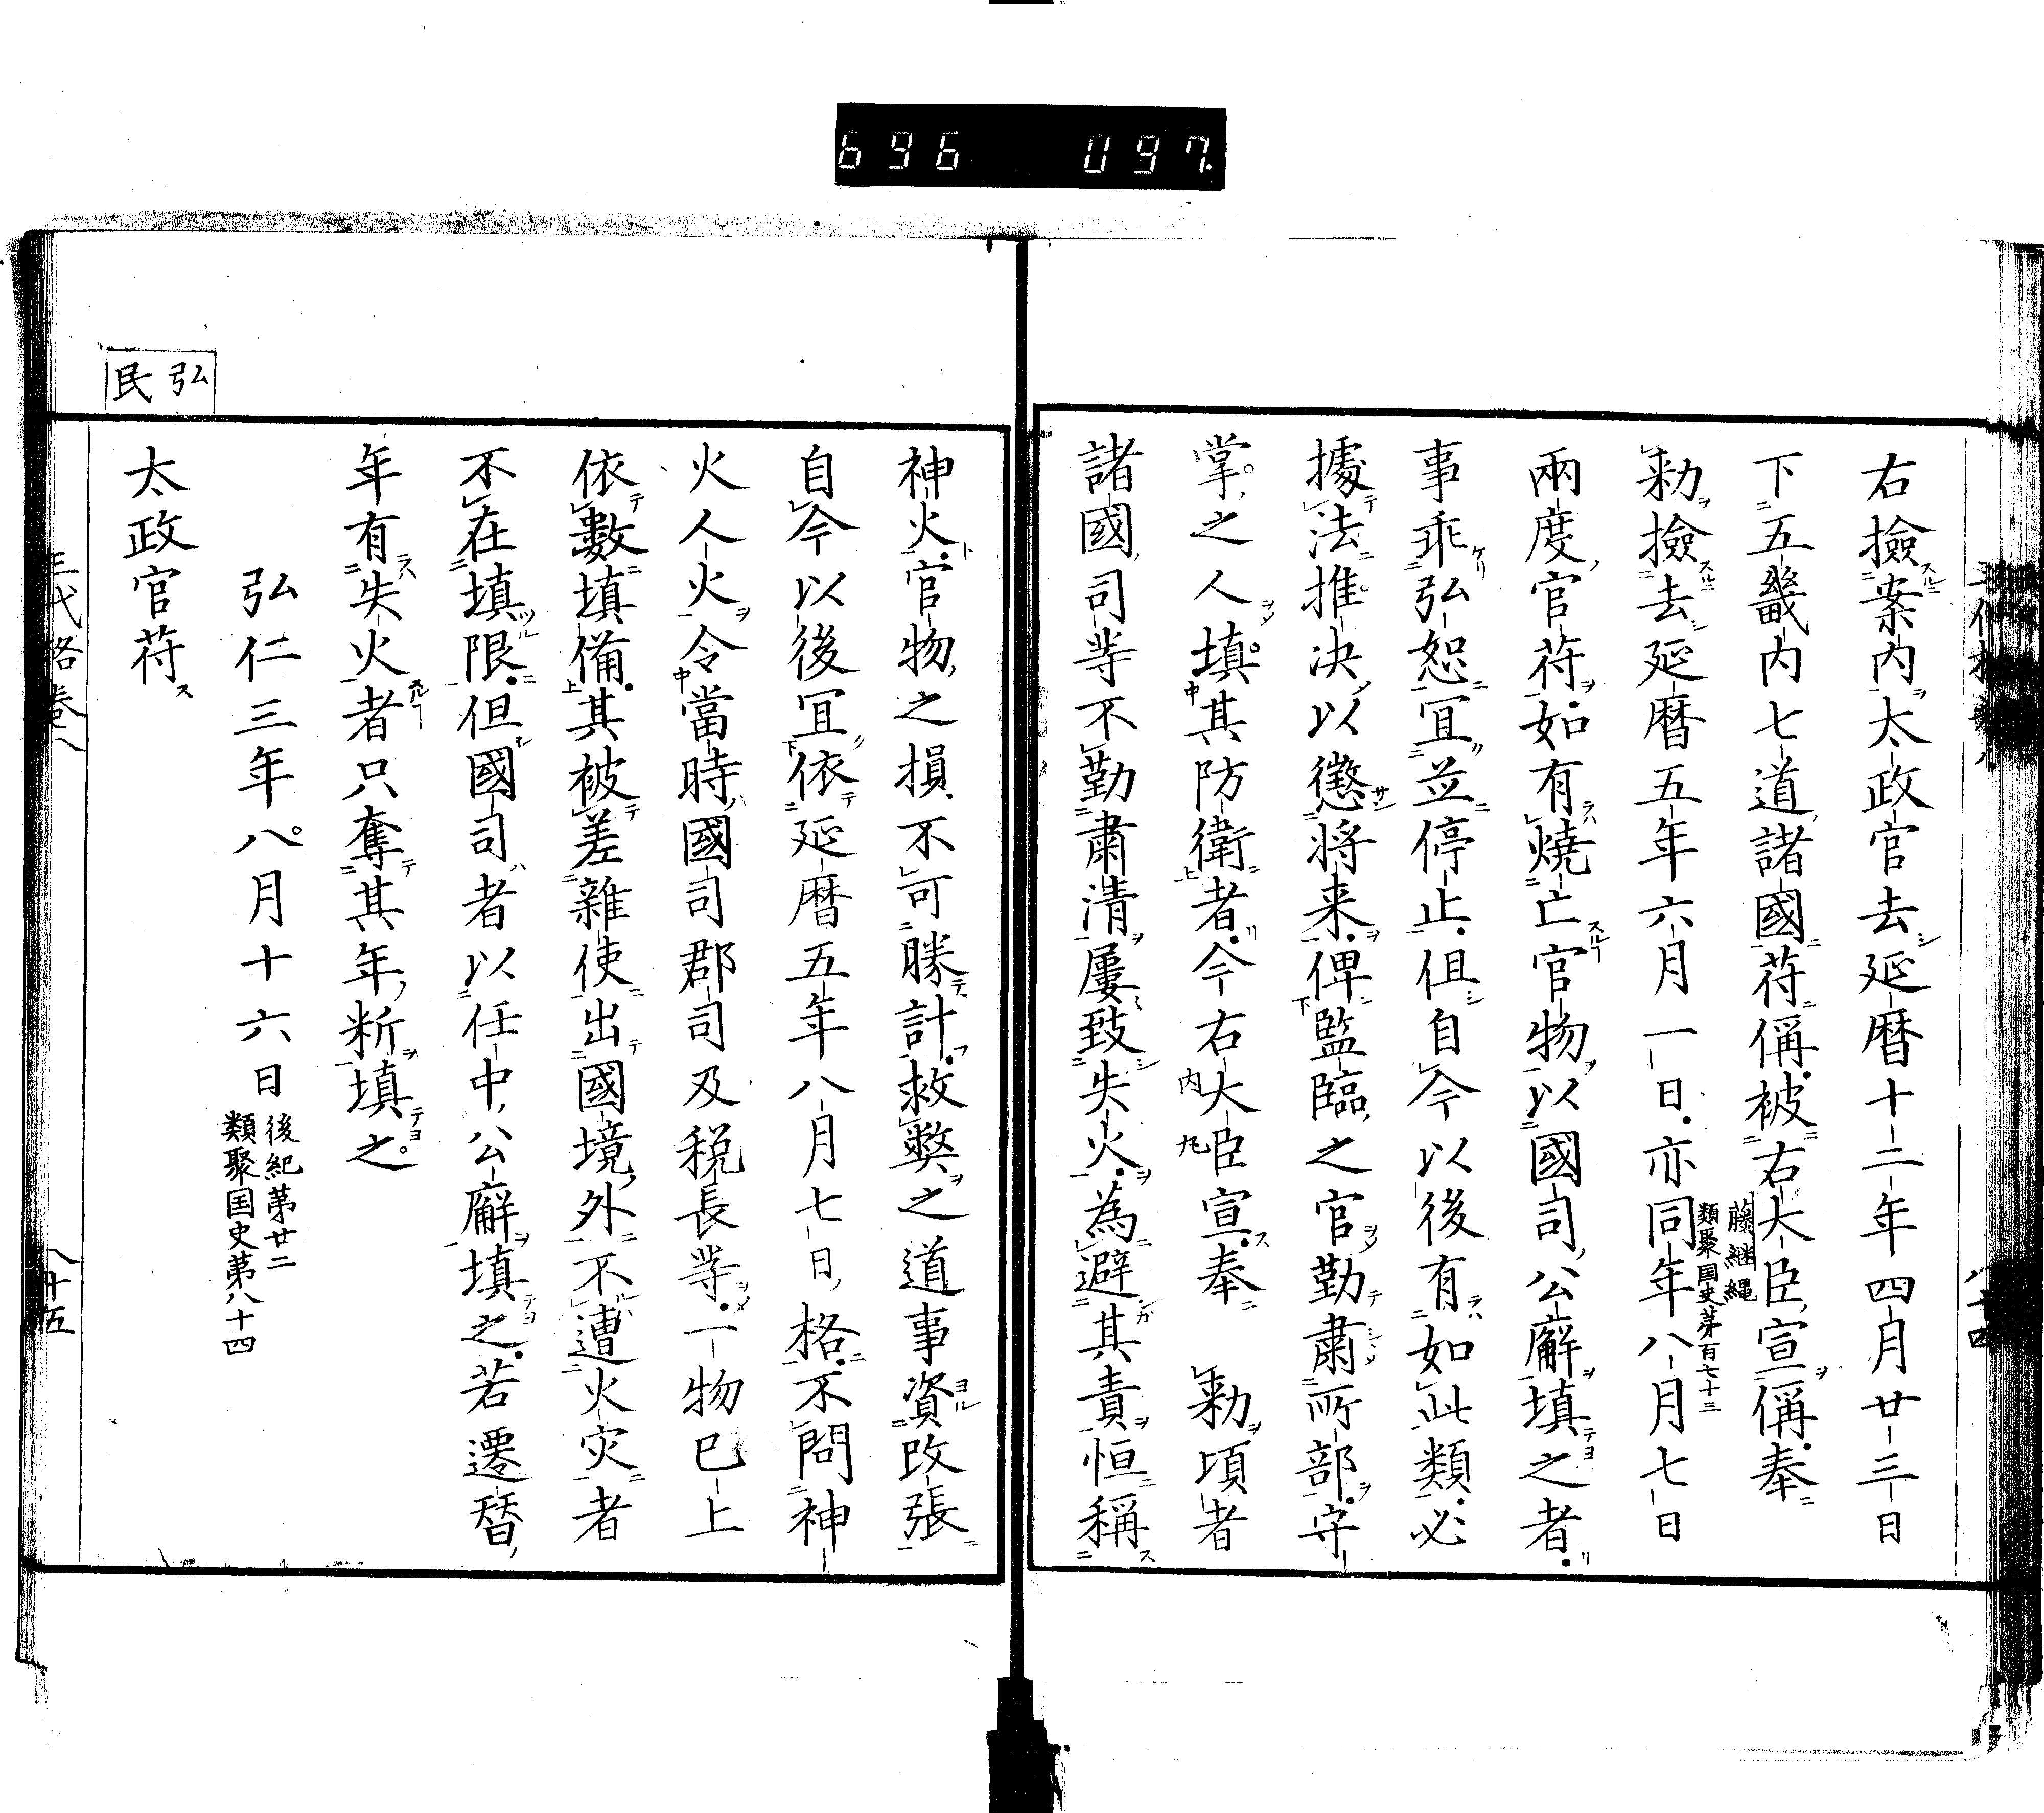 696 097.
右撿案内太政官去延暦十二年四月廿三日
下五畿内七道諸國苻稱被右大臣宣稱奉
藤継縄
類聚国史第百七十三
勅撿去延暦五年六月一日亦同年八月七日
兩度官苻如有燒亡官物以國司公廨填之者
事乖弘恕宜並停止但自今以後有如此類必
據法推决以懲將来俾監臨之官勤肅所部守
掌之人填其防衛者今右大臣宣奉 勅頃者
内丸
諸國司等不勤肅清屢致失火為避其責恒稱
神火官物之損不可勝計救弊之道事資改張
自今以後宜依延暦五年八月七日格不問神
火人火令當時國司郡司及税長等一物已上
依數填備其被差雜使出國境外不遭火灾者
不在填限但國司者以任中公廨填之若遷替
年有失火者只奪其年新填之
弘仁三年八月十六日
後紀第廿二
類聚国史第八十四
弘
民
太政官苻